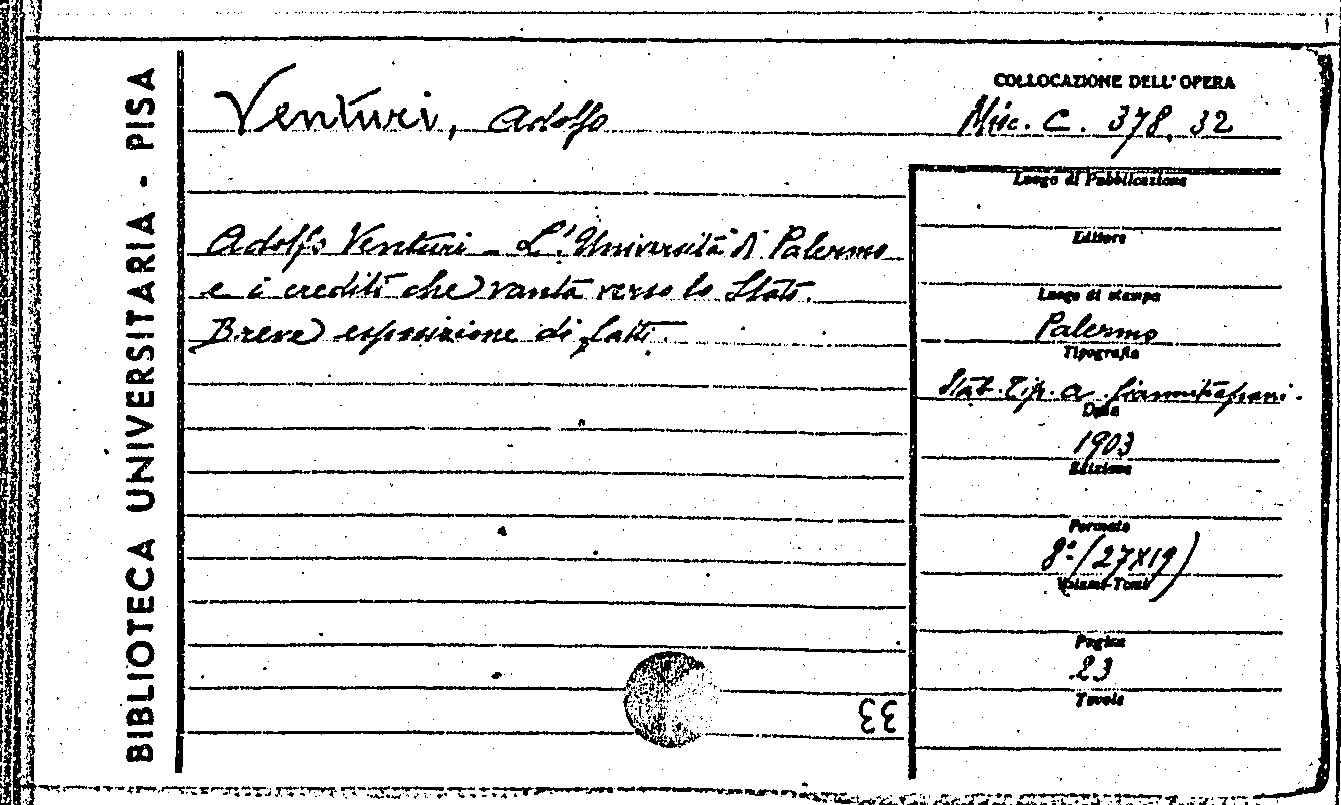 BIBLIOTECA UNIVERSITARIA - PISA
Venturi, Adolfo
COLLOCAZIONE DELL'OPERA
Misc. C. 378. 32
Adolfo Venturi - L'Università di Palermo
e i crediti che vanta verso lo Stato.
Breve esposizione di fatti.
Luogo di Pubblicazione
Editore
Luogo di stampa
Palermo
Tipografia
Stab. Tip. A. Giannitrapani.
Data
1903
Edizione
Formato
8º (27X19)
Volumi-Tomi
Pagine
23
Tavole
33